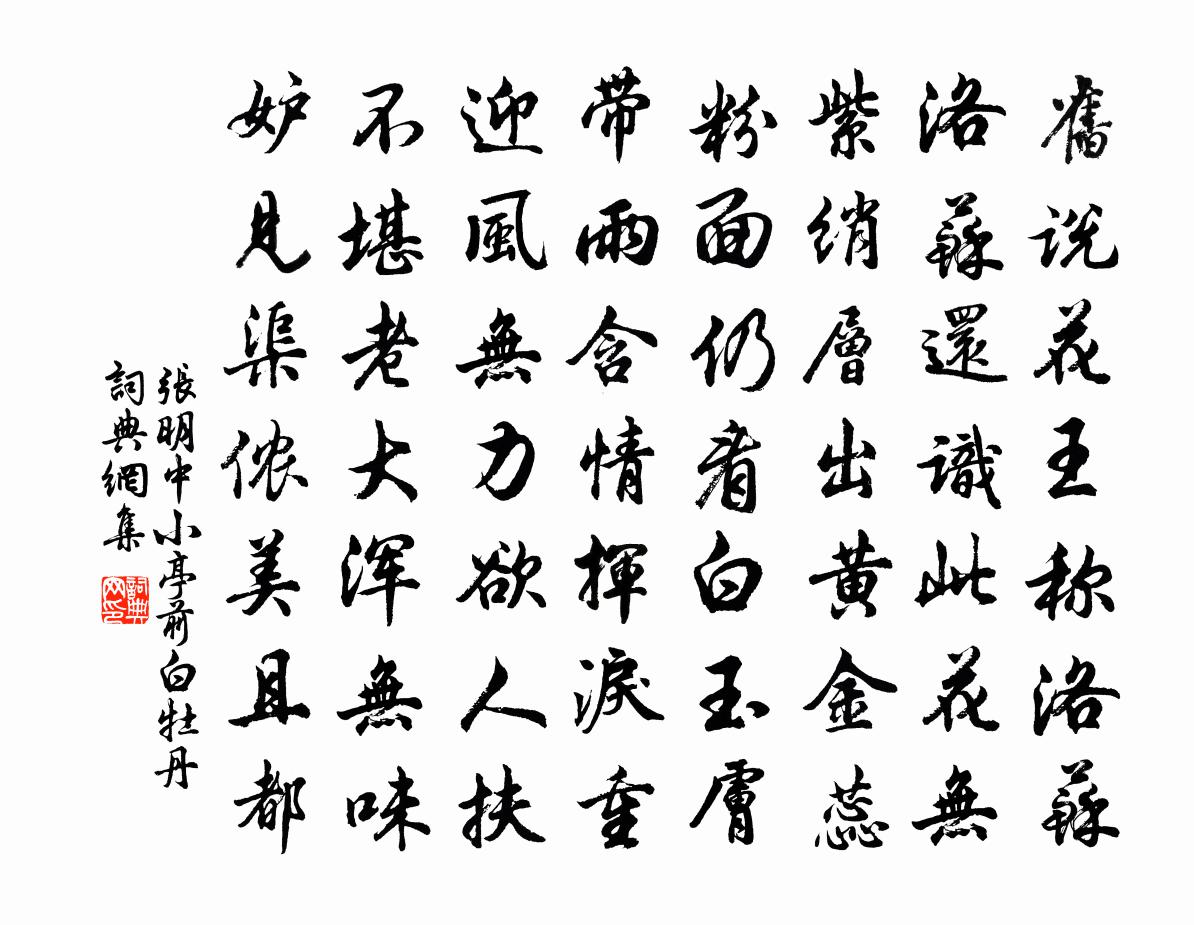 舊説花王称洛蘇
洛蘇還識此花無
紫綃層出黄金蕊
粉面仍看白玉膚
带雨含情揮淚重
迎風無力欲人扶
不堪老大浑無味
妒見渠侬美且都
張明中小亭前白牡丹
詞典網集
詞典网印